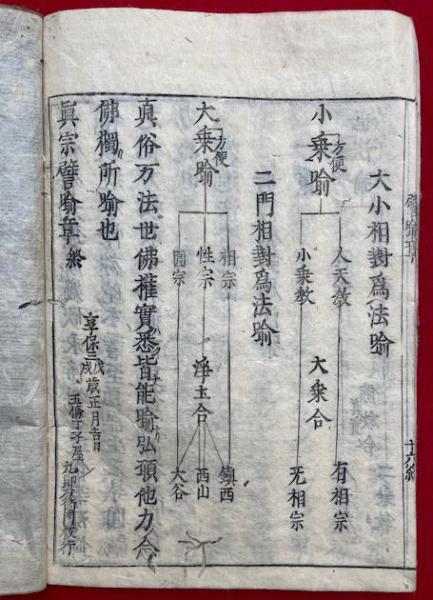 大小相對爲法喻
小乘喻
方便
人天教
小乘教
大乘合
有相宗
无相宗
二門相對爲法喻
大乘喻
方便
相宗
性宗
圓宗
淨土合
鎮西
西山
大谷
真俗万法世佛權實悉皆能喻弘願他力
佛獨所喻也
眞宗譬喻章終
享保三戊戌歲正月吉日
五條丁子屋
九郎右衛門板行
十六終